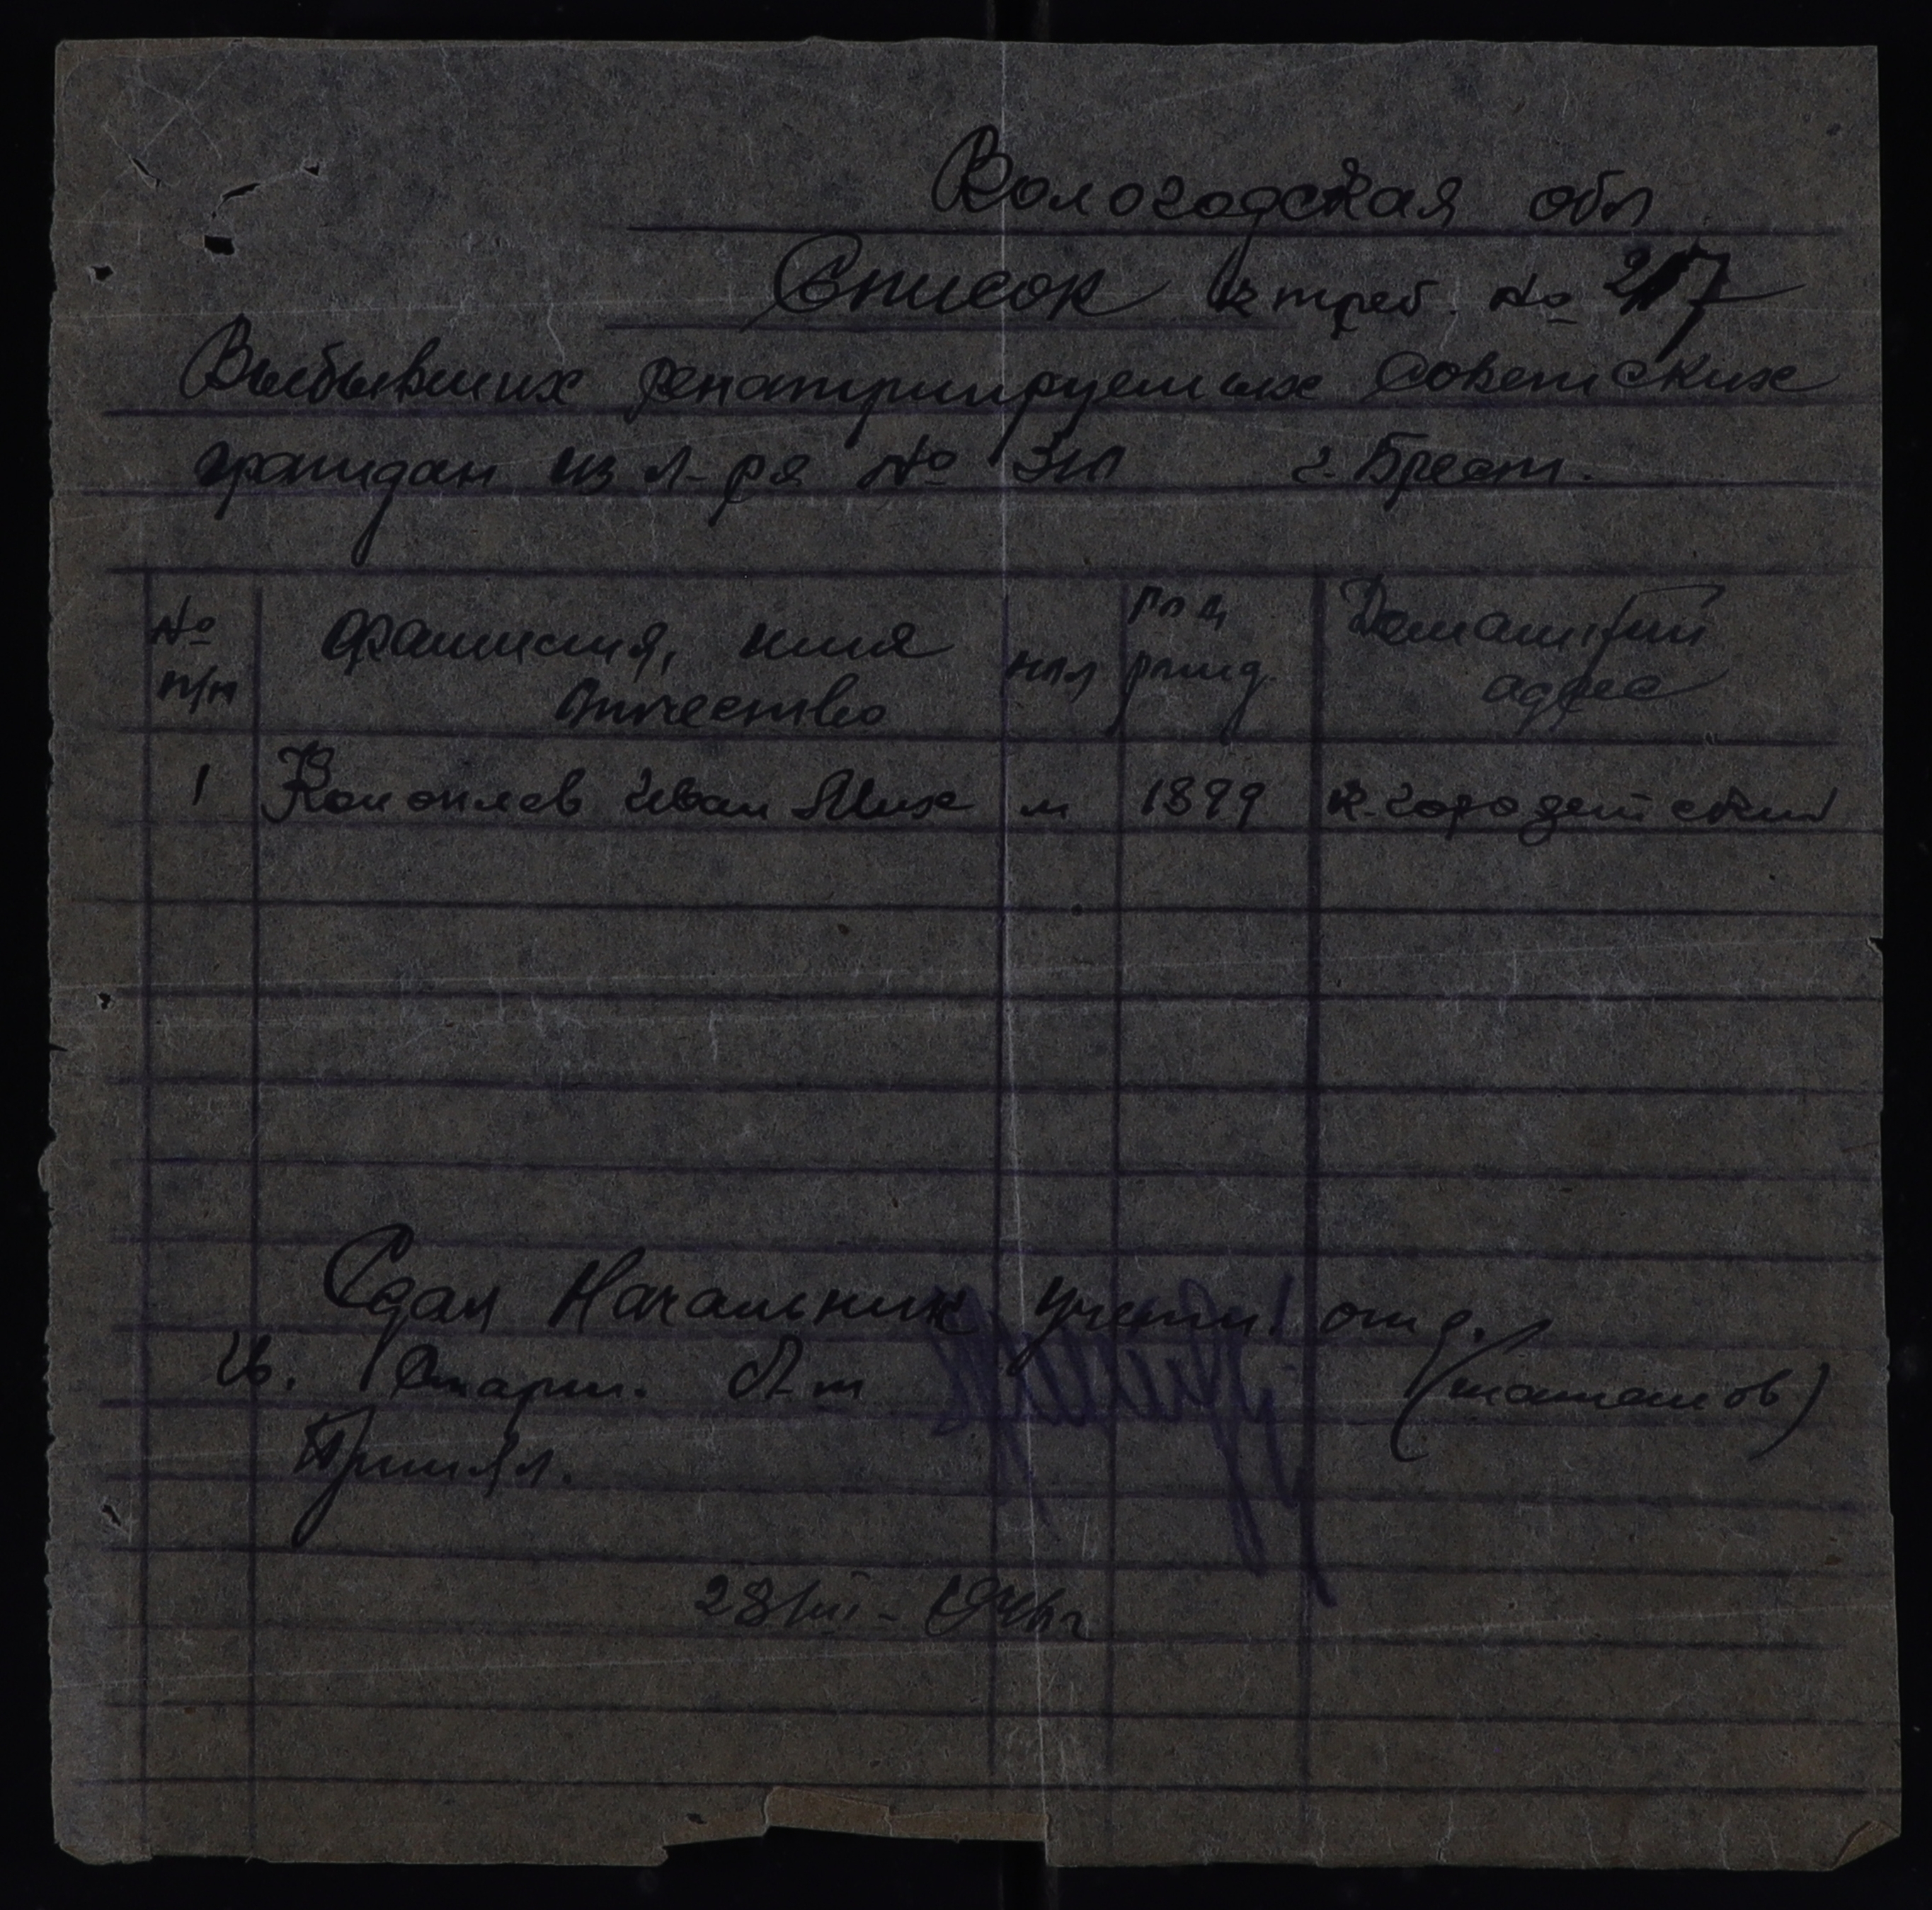 Вологодская обл
Список к треб. № 217
Выбывших репатриируемых советских
граждан из л-ря № 311 г. Брест.
№ п/п
фамилия, имя
отчество
пол
год
рожд.
Домашний
адрес
1 Коноплев Иван Мих м 1899 к-городетский
Сдал Начальник учетн. отд.
Ст. л-т
Принял.
28/III - 1946г